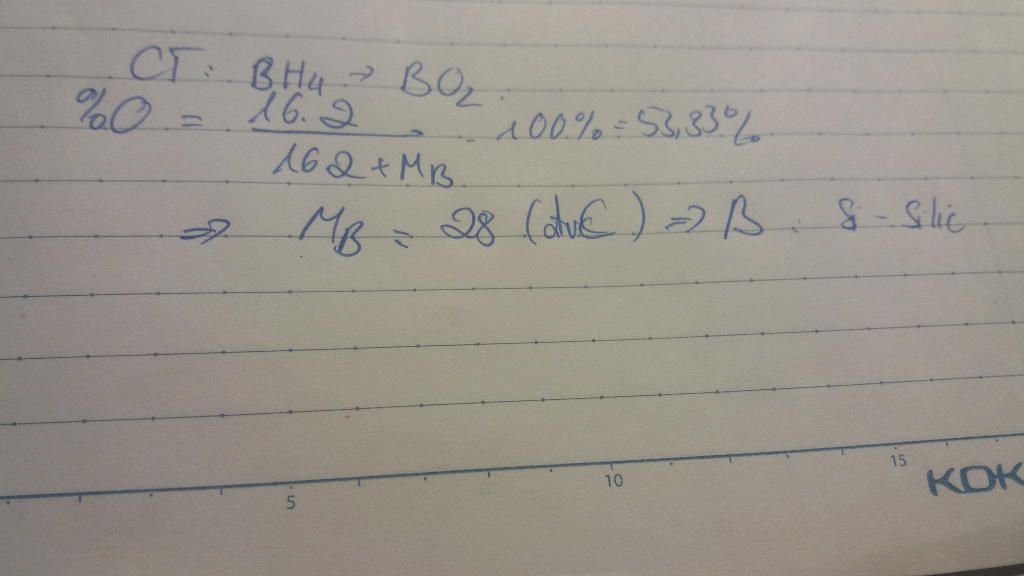 CT: BH4 → BO2.
%O = 16.2 / 162 + MB . 100% = 53,33%
⇒ MB = 28 (đvC) ⇒ B : Si - Silic
5 10 15
KOK